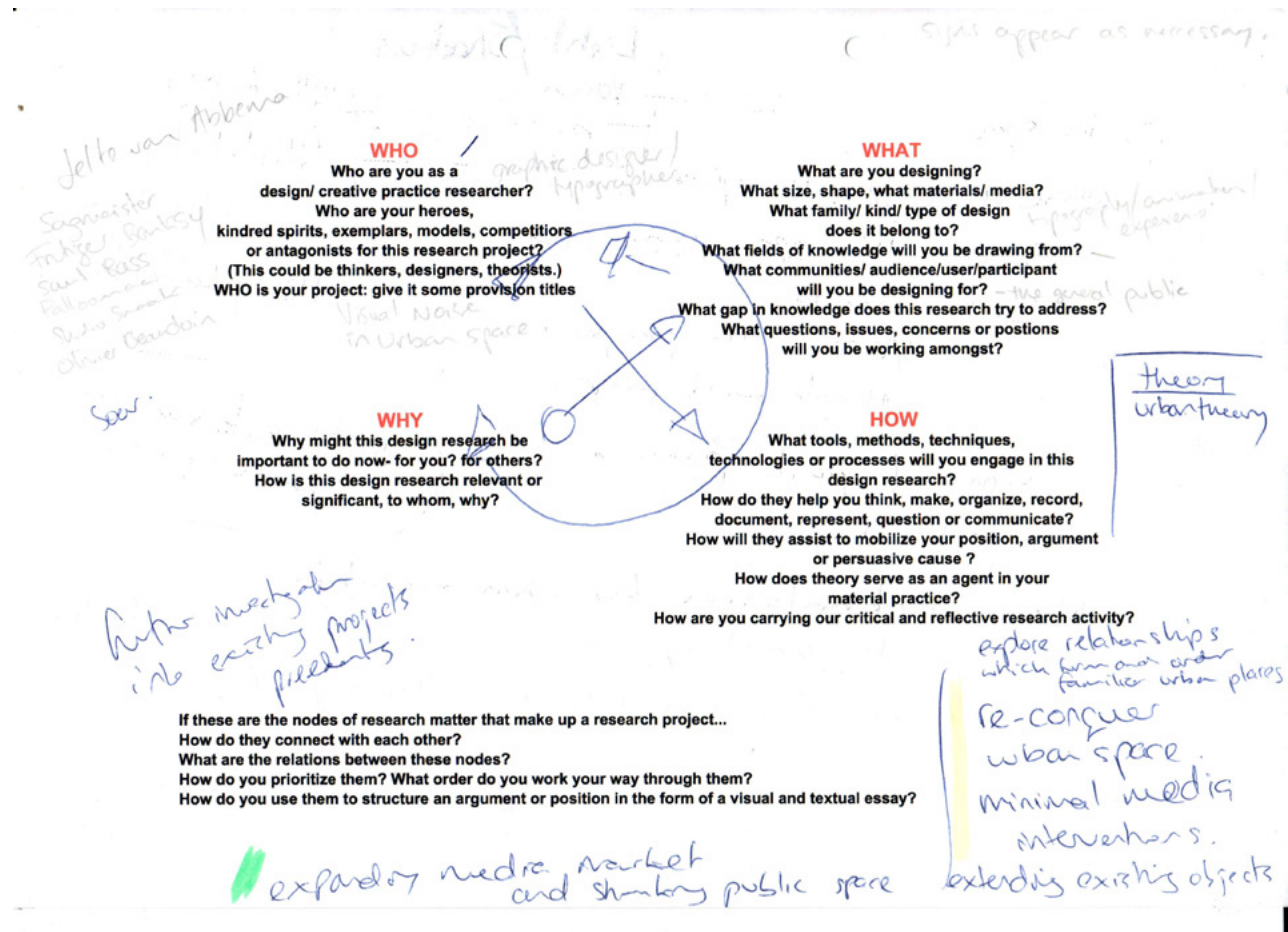 signs appear as necessary.
Jelte van Abbema
WHO
Who are you as a
design/ creative practice researcher?
Who are your heroes,
kindred spirits, exemplars, models, competitiors
or antagonists for this research project?
(This could be thinkers, designers, theorists.)
WHO is your project: give it some provision titles
graphic designer/
typographer
Sagmeister
Banksy
Saul Bass
Olivier Beaudoin
Visual Noise
in Urban space.
WHAT
What are you designing?
What size, shape, what materials/ media?
What family/ kind/ type of design
does it belong to?
What fields of knowledge will you be drawing from?
What communities/ audience/user/participant
will you be designing for?
What gap in knowledge does this research try to address?
What questions, issues, concerns or postions
will you be working amongst?
typography/animation/
- the general public
theory
urban theory
WHY
Why might this design research be
important to do now- for you? for others?
How is this design research relevant or
significant, to whom, why?
HOW
What tools, methods, techniques,
technologies or processes will you engage in this
design research?
How do they help you think, make, organize, record,
document, represent, question or communicate?
How will they assist to mobilize your position, argument
or persuasive cause ?
How does theory serve as an agent in your
material practice?
How are you carrying our critical and reflective research activity?
further investigation
into existing projects
precedents.
explore relationships
which form and order
familiar urban places
re-conquer
urban space.
minimal media
interventions.
extending existing objects
If these are the nodes of research matter that make up a research project...
How do they connect with each other?
What are the relations between these nodes?
How do you prioritize them? What order do you work your way through them?
How do you use them to structure an argument or position in the form of a visual and textual essay?
expanding media market
and shrinking public space